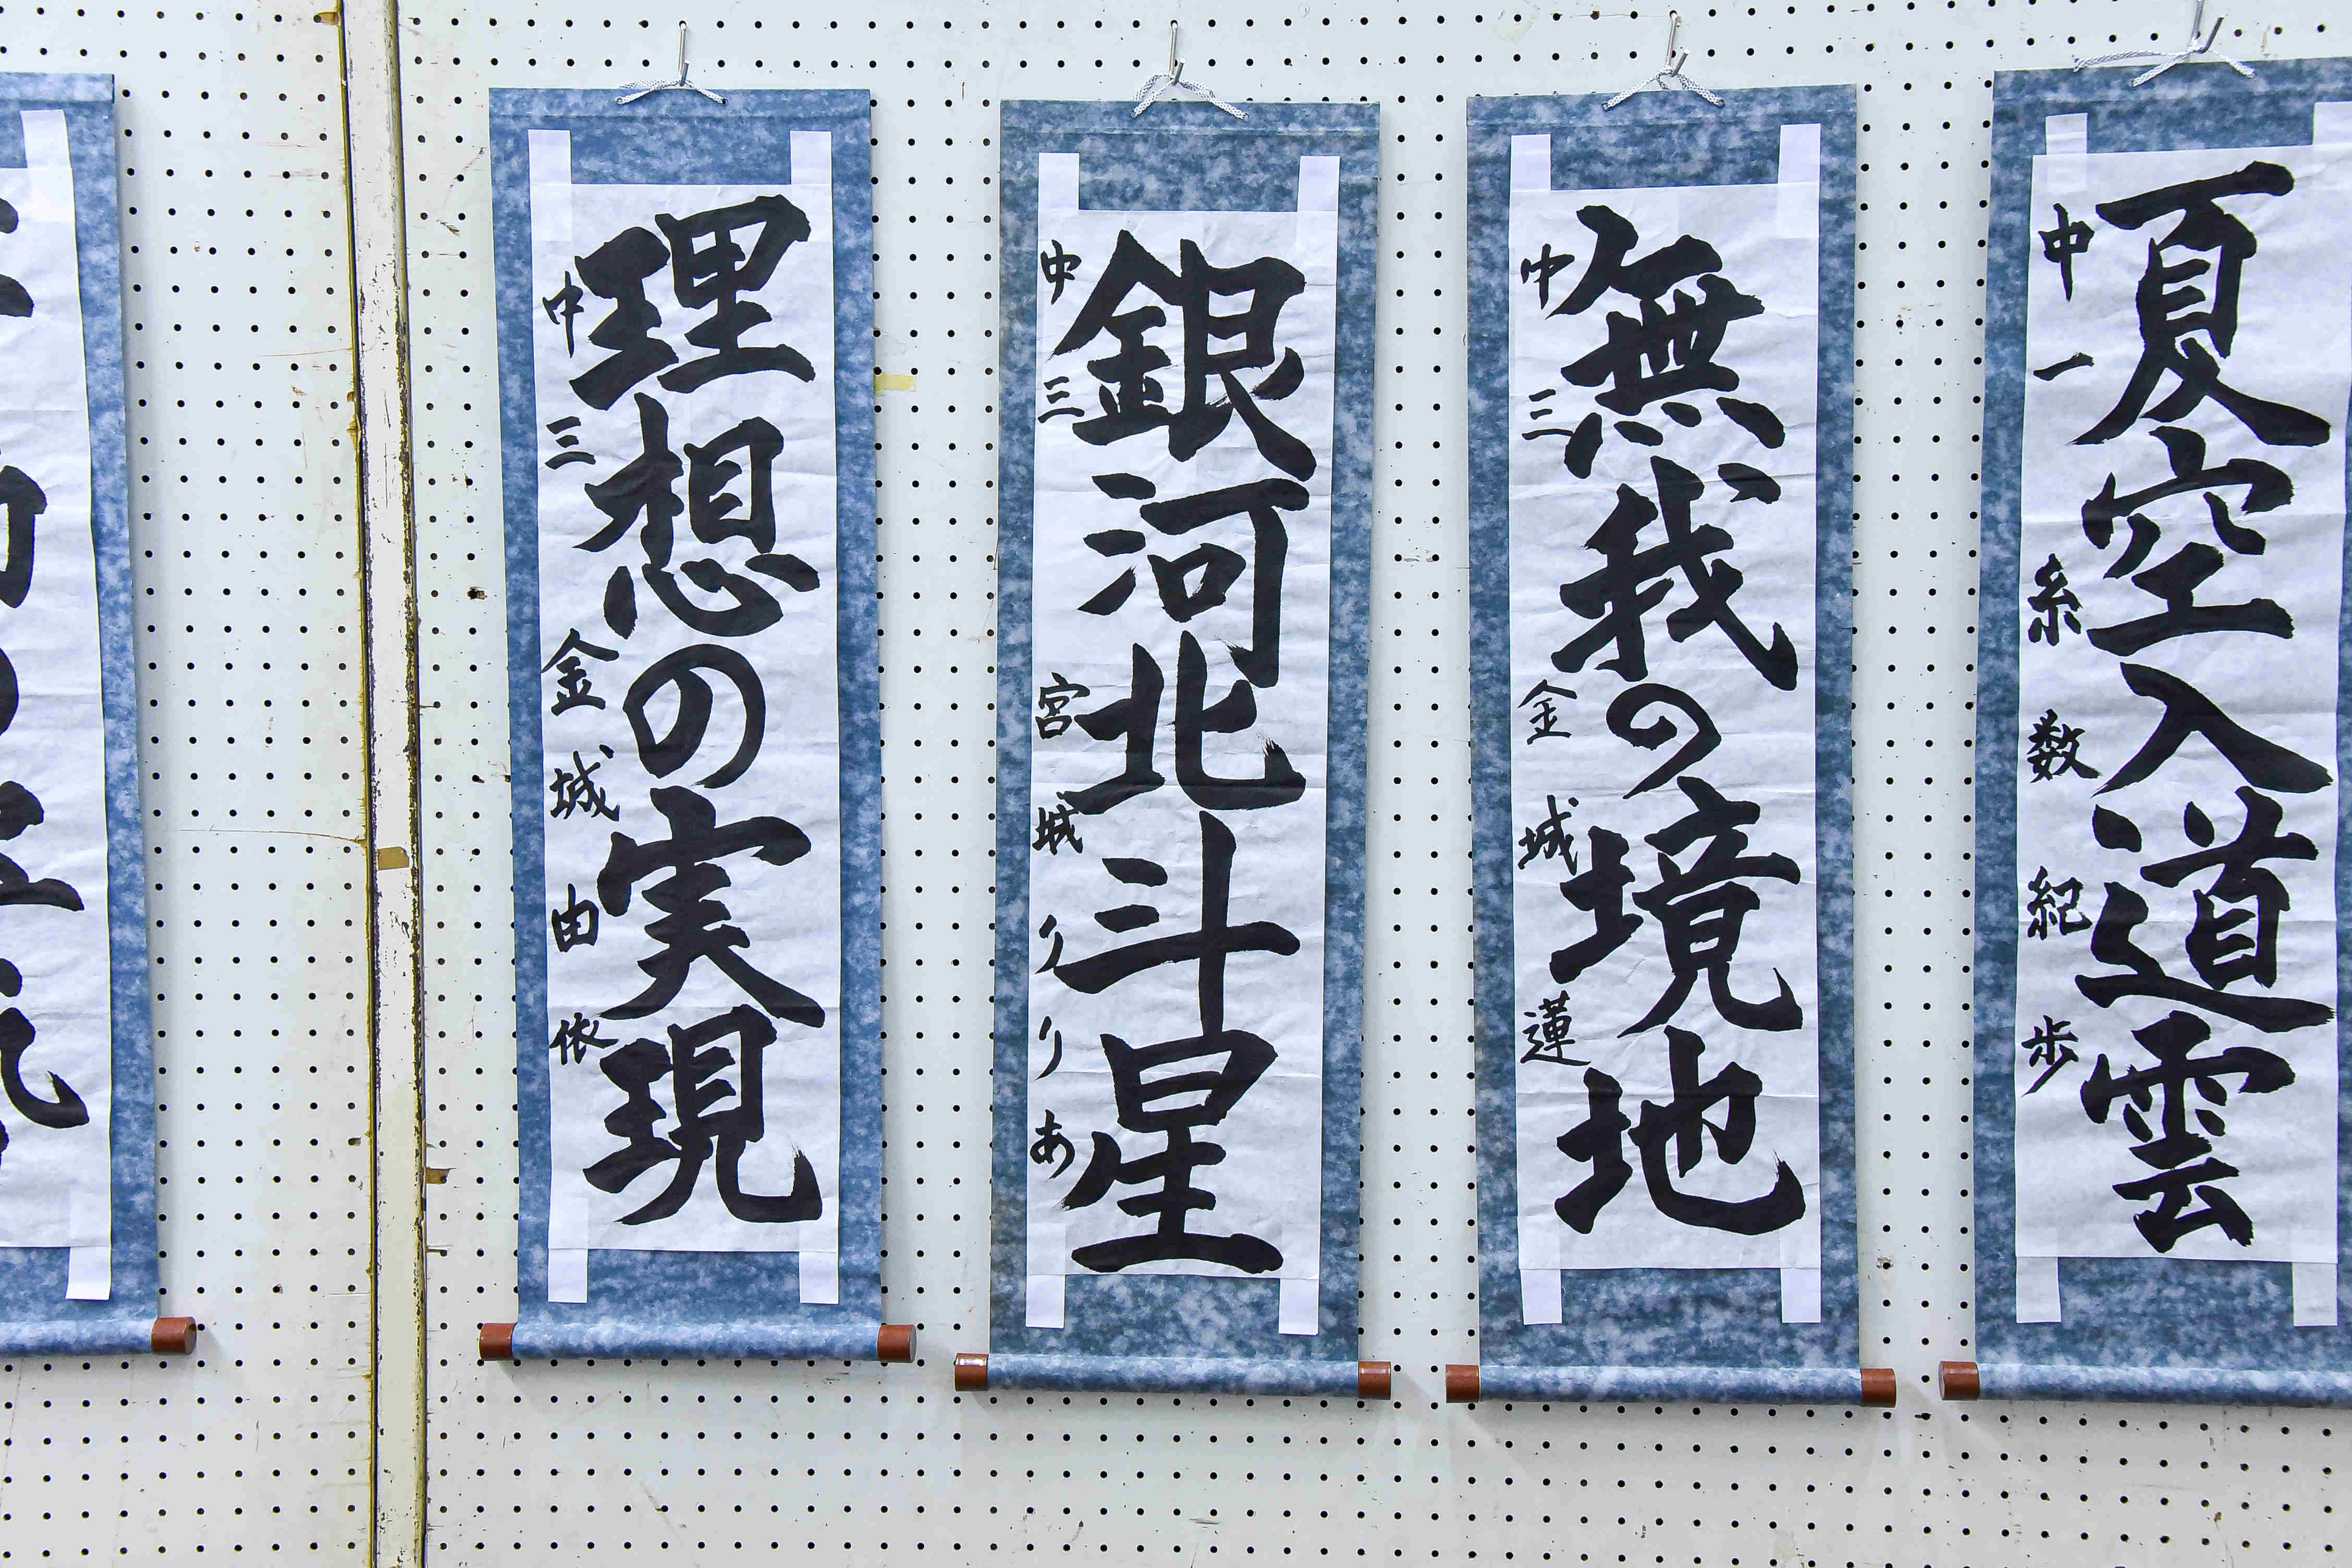 夏空入道雲
中一 糸数紀歩
無我の境地
中三 金城蓮
銀河北斗星
中三 宮城くりあ
理想の実現
中三 金城由依